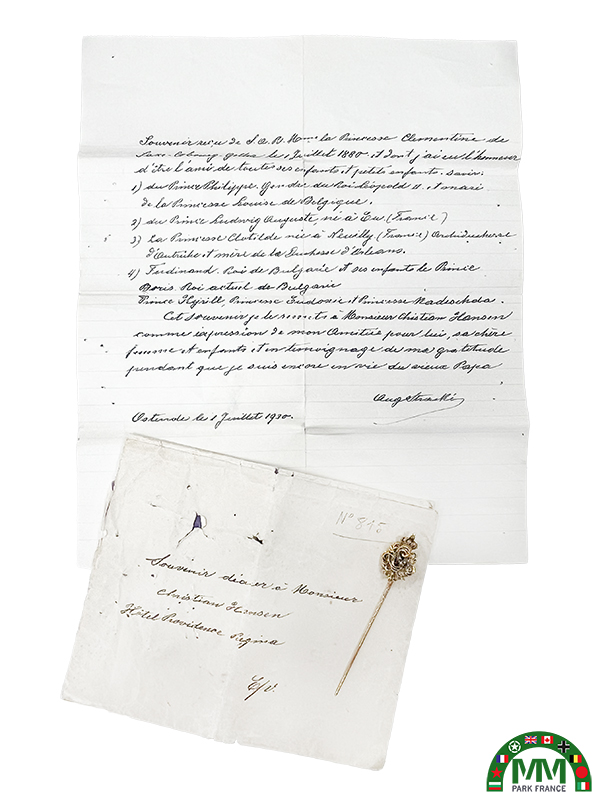 Souvenir reçu de S. A. R. Mme la Princesse Clementine de
Saxe-Cobourg-Gotha le 1 Juillet 1880 et dont j'ai eu l'honneur
d'être l'ami de toute ses enfants et petits enfants. savoir:
1) du Prince Philippe, Gendre du Roi Léopold II. et mari
de la Princesse Louise de Belgique.
2) du Prince Ludwig Auguste, né à Eu (France)
3) La Princesse Clotilde née à Neuilly (France) Archiduchesse
d'Autriche et mère de la Duchesse d'Orleans.
4) Ferdinand. Roi de Bulgarie et ses enfants le Prince
Boris. Roi actuel de Bulgarie
Prince Kyrill, Princesse Eudoxie et Princesse Nadeschda.
Cet souvenir je le remets à Monsieur Christian Hansen
comme expression de mon Amitié pour lui, sa chère
femme et enfants et en temoignage de ma gratitude
pendant que je suis encore en vie du vieux Papa
Aug
Ostende le 1 Juillet 1930.
No 815
Souvenir à Monsieur
Christian Hansen
Hôtel Providence Regina
E/v.
MM
PARK FRANCE